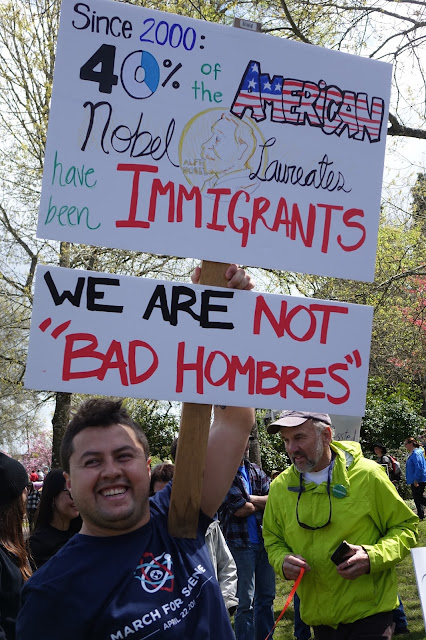 Since 2000:
40% of the AMERICAN
Nobel Laureates
have been IMMIGRANTS
WE ARE NOT
"BAD HOMBRES"
MARCH FOR SCIENCE
APRIL 22, 201